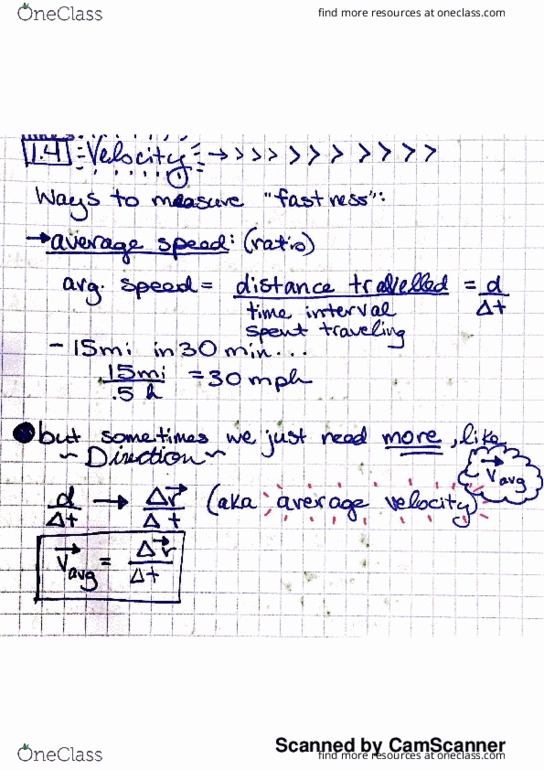 OneClass
find more resources at oneclass.com
1.4 Velocity → > > > > > > > > > > >
Ways to measure "fastness":
→ average speed: (ratio)
avg. speed = distance travelled / time interval spent traveling = d / Δt
- 15mi in 30 min...
15mi / .5 h = 30 mph
but sometimes we just need more, like
~ Direction ~
v⃗avg
d / Δt → Δr⃗ / Δt (aka average velocity)
v⃗avg = Δr⃗ / Δt
Scanned by CamScanner
OneClass
find more resources at oneclass.com